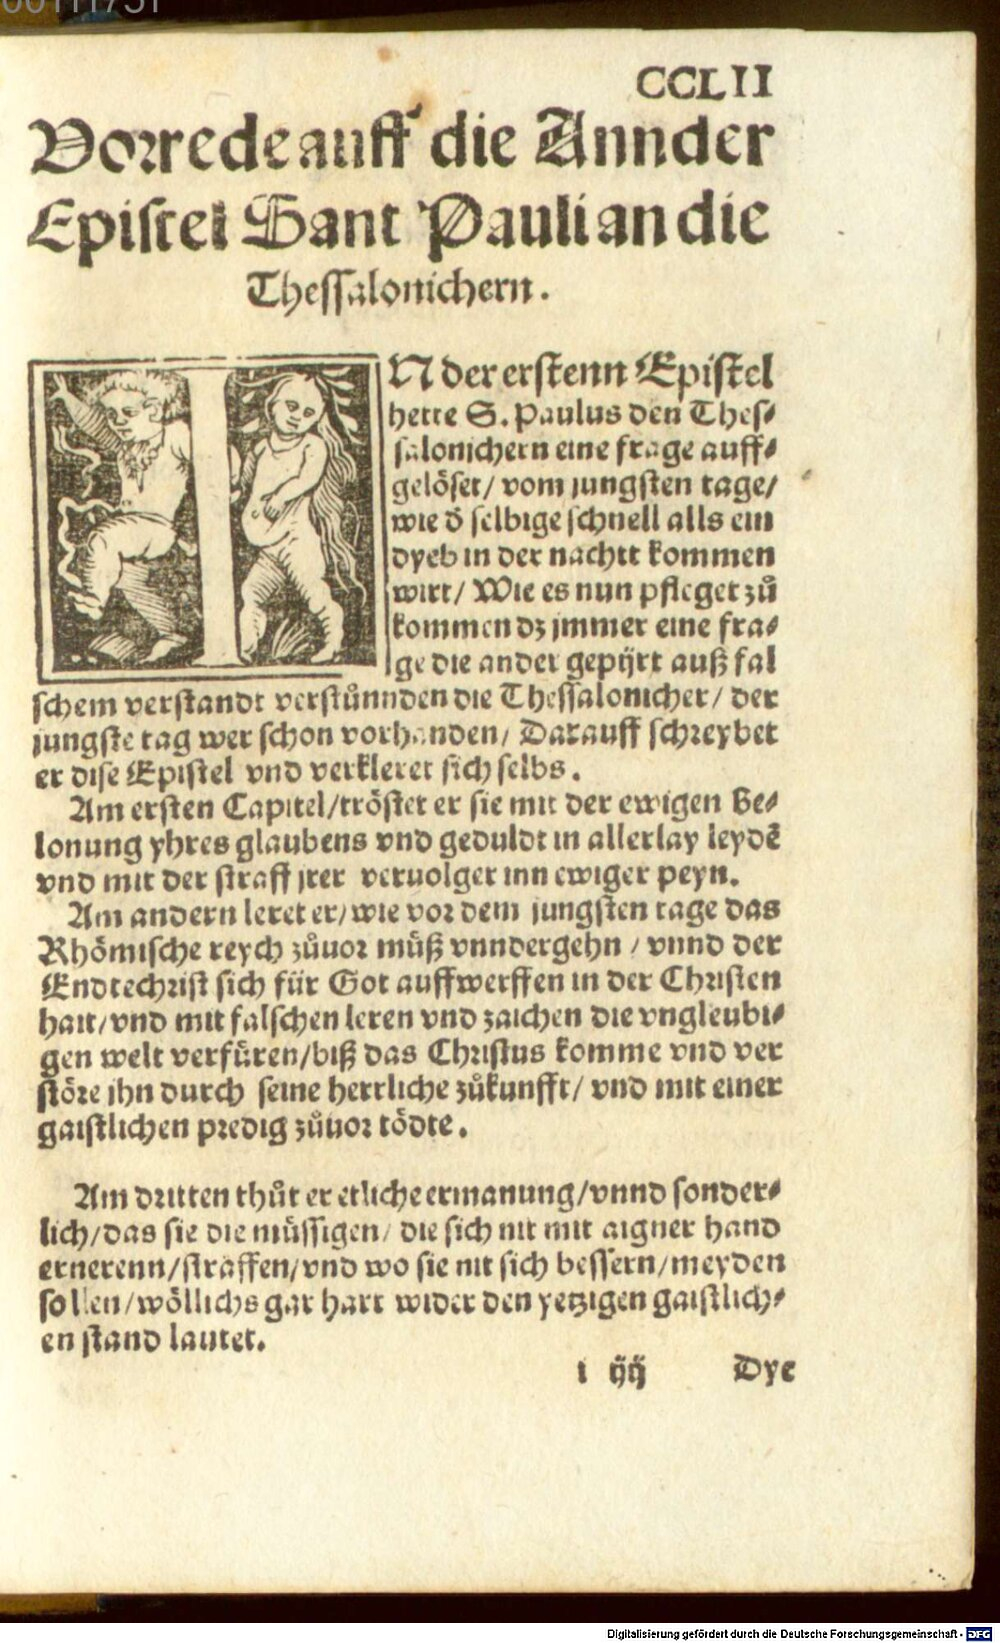 CCLII
Vorrede auff die Annder
Epistel Sant Pauli an die
Thessalonichern.
IN der erstenn Epistel
hette S. Paulus den Thes⸗
salonichern eine frage auff⸗
gelöset/ vom jungsten tage/
wie d̄ selbige schnell alls ein
dyeb in der nachtt kommen
wirt/ Wie es nun pfleget zů
kommen dz jmmer eine fra⸗
ge die ander gepijrt auß fal
schem verstandt verstůnnden die Thessalonicher/ der
jungste tag wer schon vorhanden/ Darauff schreybet
er dise Epistel vnd verkleret sich selbs.
Am ersten Capitel/tröstet er sie mit der ewigen Be⸗
lonung yhres glaubens vnd geduldt in allerlay leydē
vnd mit der straff jrer veruolger inn ewiger peyn.
Am andern leret er/wie vor dem jungsten tage das
Rhömische reych zůuor müß vnndergehn / vnnd der
Endtechrist sich für Got auffwerffen in der Christen
hait/vnd mit falschen leren vnd zaichen die vngleubi⸗
gen welt verfüren/biß das Christus komme vnd ver
störe jhn durch seine herrliche zůkunfft/ vnd mit einer
gaistlichen predig zůuor tödte.
Am dritten thůt er etliche ermanung/vnnd sonder⸗
lich/das sie die müssigen/ die sich nit mit aigner hand
ernerenn/straffen/vnd wo sie nit sich bessern/meyden
sollen/wöllichs gar hart wider den yetzigen gaistlich⸗
en stand lautet.
i ÿÿ Dye
Digitalisierung gefördert durch die Deutsche Forschungsgemeinschaft - DFG